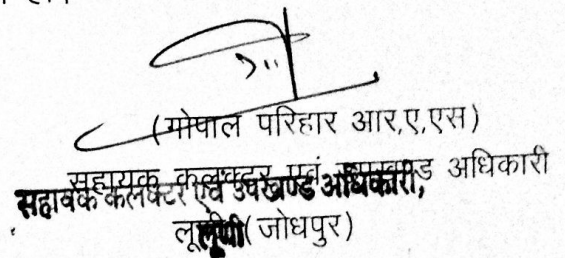 (गोपाल परिहार आर,ए,एस)
सहायक कलक्टर एवं उपखण्ड अधिकारी
सहायक कलक्टर एवं उपखण्ड अधिकारी,
लूणी (जोधपुर)
लूणी